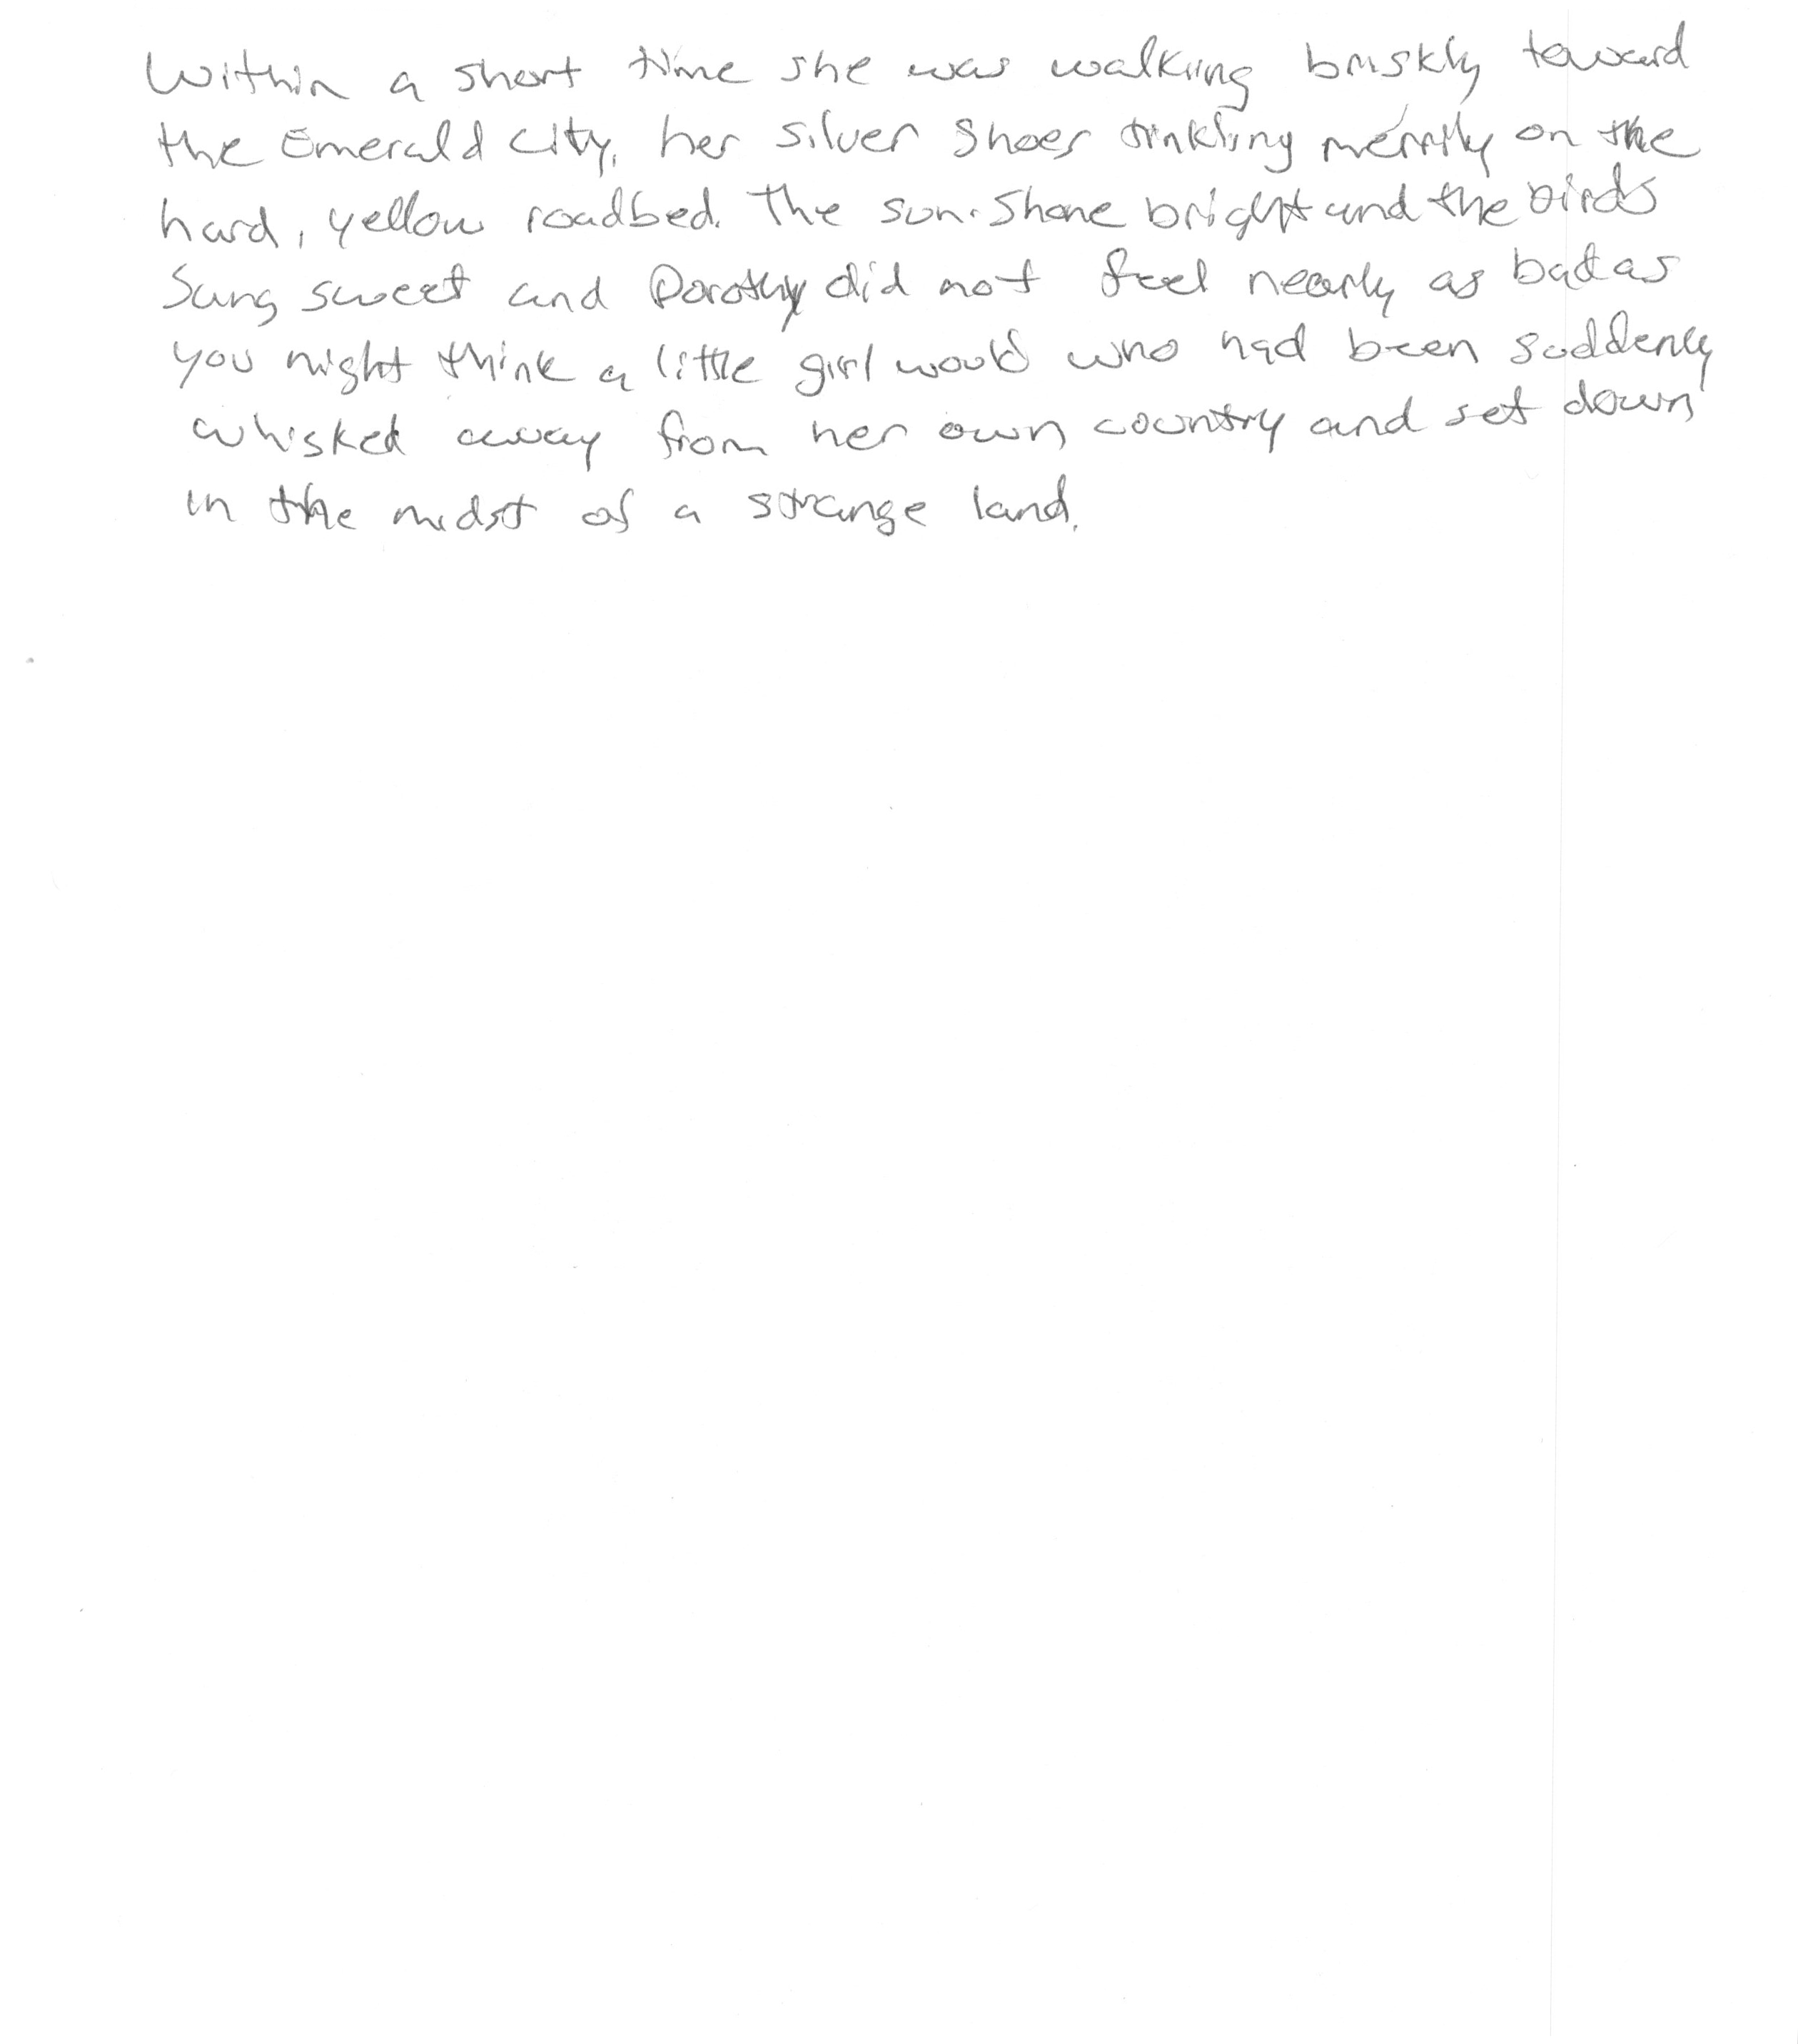 Within a short time she was walking briskly toward
the Emerald City, her silver shoes tinkling merrily on the
hard, yellow roadbed. The sun shone bright and the birds
sang sweet and Dorothy did not feel nearly as bad as
you might think a little girl would who had been suddenly
whisked away from her own country and set down
in the midst of a strange land.